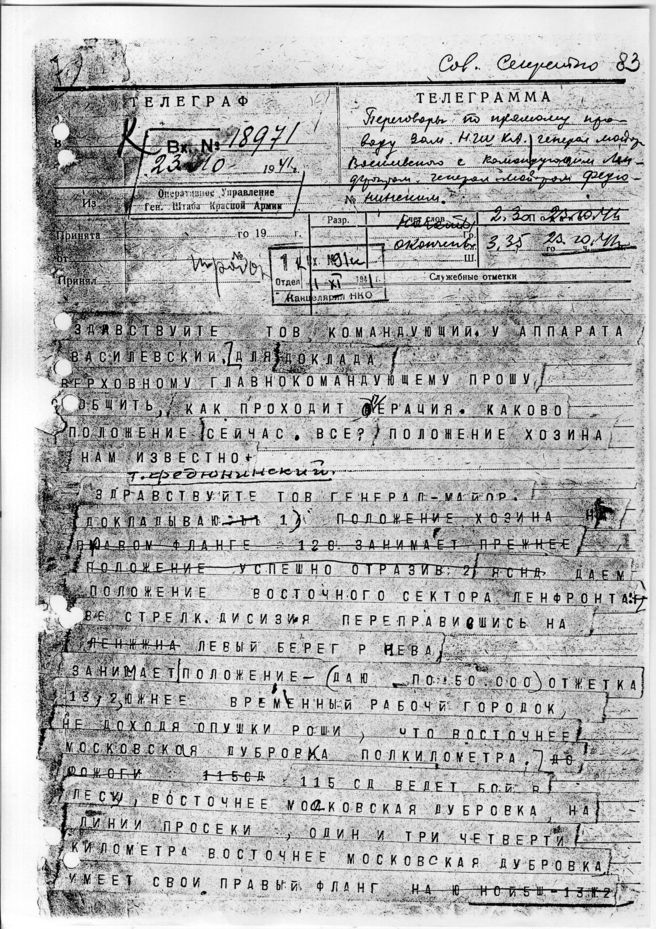 Сов. Секретно 83
ТЕЛЕГРАФ
ТЕЛЕГРАММА
Переговоры по прямому про-
воду Зам. НГШ КА генерал майор
Василевского с командующим Лен-
фронтом генерал майором Федю-
нинским.
К
Вх. № 18971
23 10 1941 г.
Оперативное Управление
Ген. Штаба Красной Армии
Из
№
Принята
го 19 г.
от
Принял
№
Разр.
Счет слов
Гр.
Ш.
начато 2.30
окончены 3.35 23.10.41
го ч.
Отдел 1 XI 1941 г.
Канцелярия НКО
Служебные отметки
ЗДАВСТВУЙТЕ ТОВ КОМАНДУЮЩИЙ. У АППАРАТА
ВАСИЛЕВСКИЙ. ДЛЯ ДОКЛАДА
ВЕРХОВНОМУ ГЛАВНОКОМАНДУЮЩЕМУ ПРОШУ
ОБЩИТЬ, КАК ПРОХОДИТ ОПЕРАЦИЯ. КАКОВО
ПОЛОЖЕНИЕ СЕЙЧАС. ВСЕ? ПОЛОЖЕНИЕ ХОЗИНА
НАМ ИЗВЕСТНО+
т. Федюнинский.
ЗДРАВСТВУЙТЕ ТОВ ГЕНЕРАЛ-МАЙОР.
ДОКЛАДЫВАЮ 1) ПОЛОЖЕНИЕ ХОЗИНА НА
ПРАВОМ ФЛАНГЕ 128 ЗАНИМАЕТ ПРЕЖНЕЕ
ПОЛОЖЕНИЕ УСПЕШНО ОТРАЗИВ 2/ ЯСНА ДАЕМ
ПОЛОЖЕНИЕ ВОСТОЧНОГО СЕКТОРА ЛЕНФРОНТА:
СТРЕЛК. ДИСИЗИЯ ПЕРЕПРАВИВШИСЬ НА
ЛЕВЫЙ БЕРЕГ Р НЕВА,
ЗАНИМАЕТ ПОЛОЖЕНИЕ-(ДАЮ ПО 50.000) ОТЖЕТКА
13,2 ЮЖНЕЕ ВРЕМЕННЫЙ РАБОЧЙ ГОРОДОК,
НЕ ДОХОДЯ ОПУШКИ РОШИ, ЧТО ВОСТОЧНЕЕ
МОСКОВСКАЯ ДУБРОВКА ПОЛКИЛОМЕТРА.
115СД 115 СД ВЕДЕТ БОЙ В
ЛЕСУ, ВОСТОЧНЕЕ МОСКОВСКАЯ ДУБРОВКА, НА
ЛИНИИ ПРОСЕКИ, ОДИН И ТРИ ЧЕТВЕРТИ
КИЛОМЕТРА ВОСТОЧНЕЕ МОСКОВСКАЯ ДУБРОВКА
ИМЕЕТ СВОИ ПРАВЫЙ ФЛАНГ НА Ю